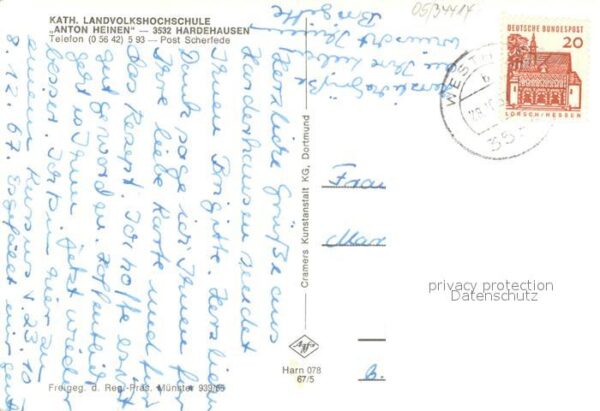 KATH. LANDVOLKSHOCHSCHULE
"ANTON HEINEN" — 3532 HARDEHAUSEN
Telefon (0 56 42) 5 93 — Post Scherfede
Herzliche Grüße aus
Hardehausen sendet
Ihnen Brigitte. Herzlichen
Dank sage ich Ihnen für
Ihre liebe Karte und für
das Rezept. Ich hoffe es ist
gut geworden. Hoffentlich
geht es Ihnen jetzt wieder
besser. Ich bin hier zu
einem Kursus v. 23.10.-
8.12.67. Es gefällt mir gut
Herzliche Grüße
an Ihre
wünscht Ihnen
Brigitte
05/34414
DEUTSCHE BUNDESPOST
20
LORSCH/HESSEN
Frau
Mar
Cramers Kunstanstalt KG, Dortmund
Harn 078
67/5
Freigeg. d. Reg.-Präs. Münster 939/65
privacy protection
Datenschutz